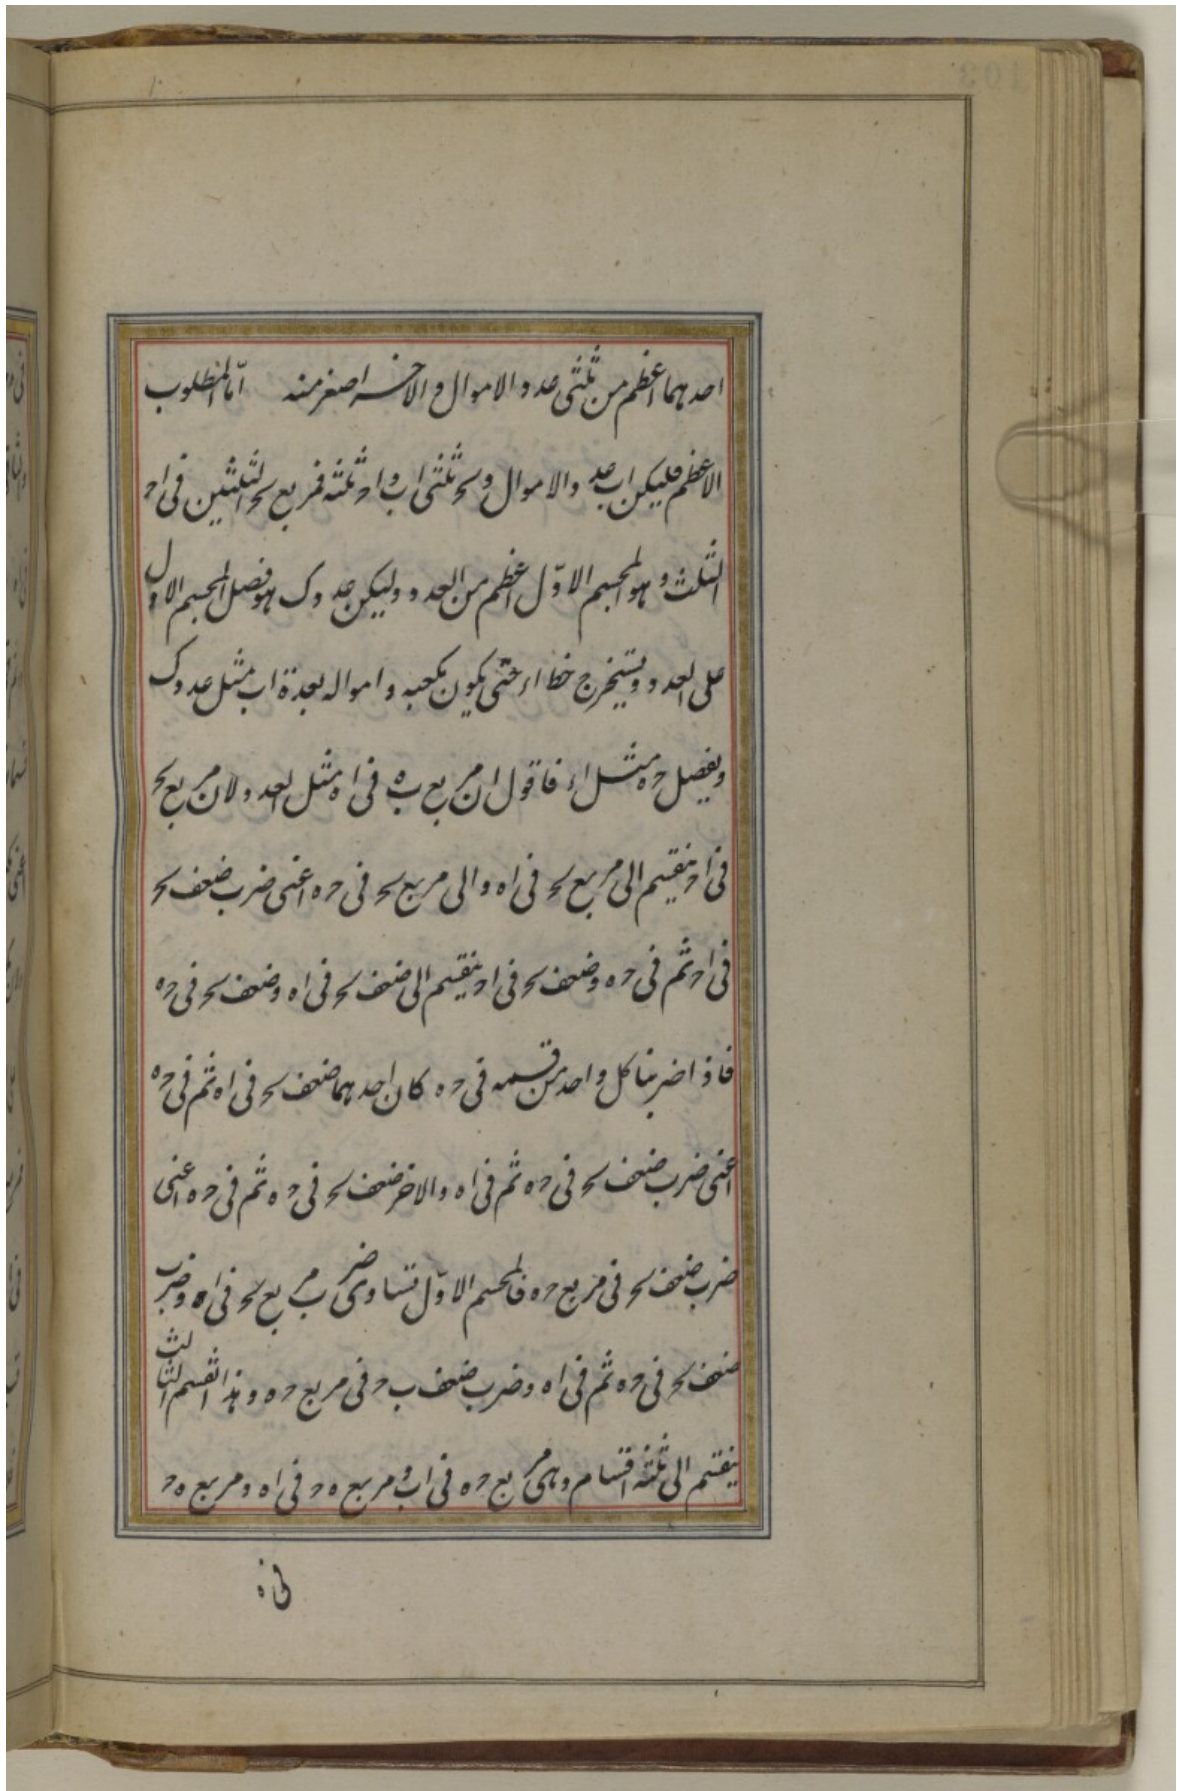 احدهما اعظم من ثلثی عدد الاموال والاخر اصغر منه اما المطلوب
الاعظم فلیکن اب عدد الاموال و ںح ثلثی اب و اح ثلثه فمربع ںح الثلثین فی اح
الثلث و هو المجسم الاوّل اعظم من العدد ولیکن عدد ک هو فضل المجسم الاول
علی العدد و یستخرج خط اء حتی یکون مکعبه و امواله بعدة اب مثل عدد ک
ویفصل ح ه مثل اء فاقول ان مربع ب ه فی اه مثل العدد لان مربع ںح
فی اح ینقسم الی مربع ںح فی اه والی مربع ںح فی ح ه اعنی ضرب ضعف ںح
فی اح ثم فی ح ه وضعف ںح فی اح ینقسم الی ضعف ںح فی اه وضعف ںح فی ح ه
فاذا ضربنا کل واحد من قسمه فی ح ه کان احدهما ضعف ںح فی اه ثم فی ح ه
اعنی ضرب ضعف ںح فی ح ه ثم فی اه والاخر ضعف ںح فی ح ه ثم فی ح ه اعنی
ضرب ضعف ںح فی مربع ح ه فالمجسم الاوّل تساوی ضرب مربع ںح فی اه وضرب
ضعف ںح فی ح ه ثم فی اه وضرب ضعف ب ح فی مربع ح ه وهذا القسم الثالث
ینقسم الی ثلثه اقسام وهی مربع ح ه فی اب و مربع ه ح فی اه و مربع ه ح
فی ه